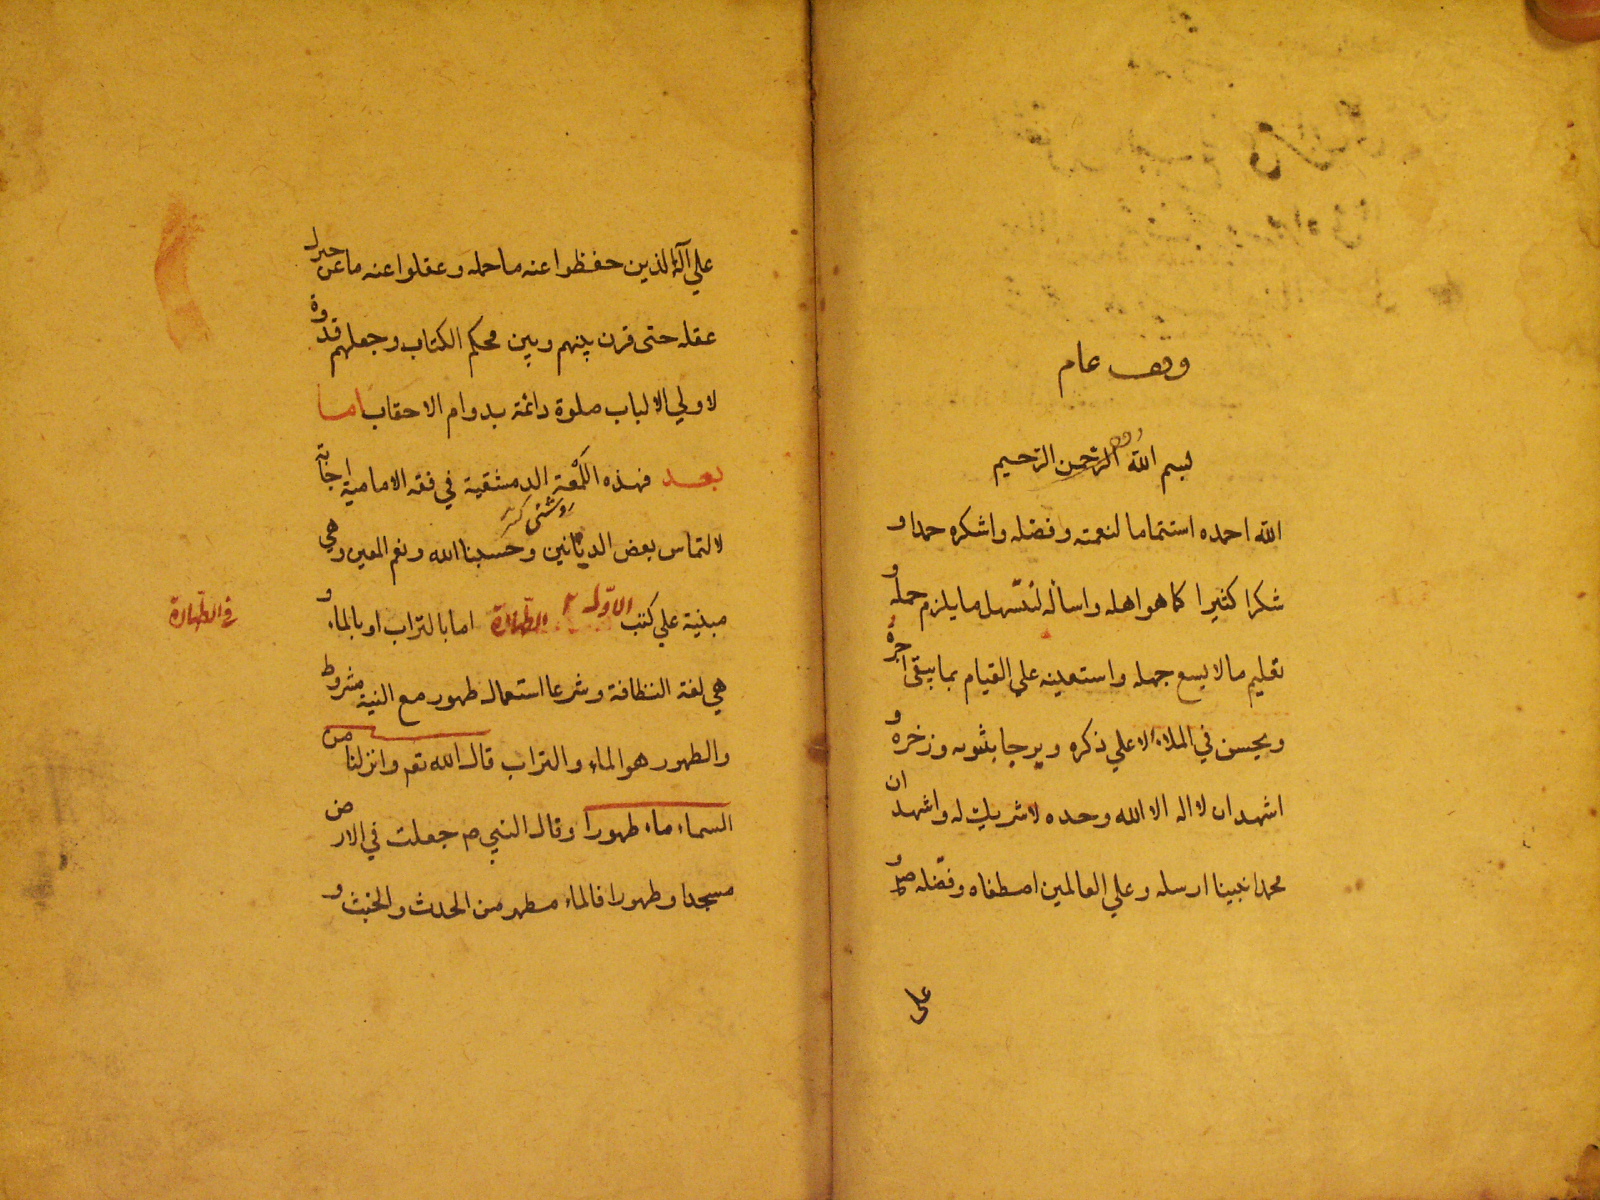 وقف عام
بسم الله الرحمن الرحيم
الله احمده استتماما لنعمته وفضله واشكره حمدا و
شكرا كثيرا كما هو اهله واسأله تسهيل ما يلزم حمله و
تعليم ما لا يسع جهله واستعينه علي القيام بما يبقى اجره
ويحسن في الملاء الاعلي ذكره ويرجا مثوبه وذخره و
اشهد ان لا اله الا الله وحده لا شريك له واشهد ان
محمدا نبينا ارسله وعلي العالمين اصطفاه وفضله
علي
علي آله الذين حفظوا عنه ما حمله وعقلوا عنه ما عن جبرل
عقله حتى قرن بينهم وبين محكم الكتاب وجعلهم قدوة
لاولي الالباب صلوة دائمة بدوام الاحقاب اما
بعد فهذه اللمعة الدمشقية في فقه الامامية اجابة
لالتماس بعض الديانين وحسبنا الله ونعم المعين وهي
مبنية علي كتب الاول الطهارة اما بالتراب او بالماء و
في الطهارة
هي لغة النظافة وشرعا استعمال طهور مع النية مشروط
والطهور هو الماء والتراب قال الله تعم وانزلنا من
السماء ماء طهورا وقال النبي ص جعلت في الارض
مسجدا وطهورا فالماء مطهر من الحدث والخبث و